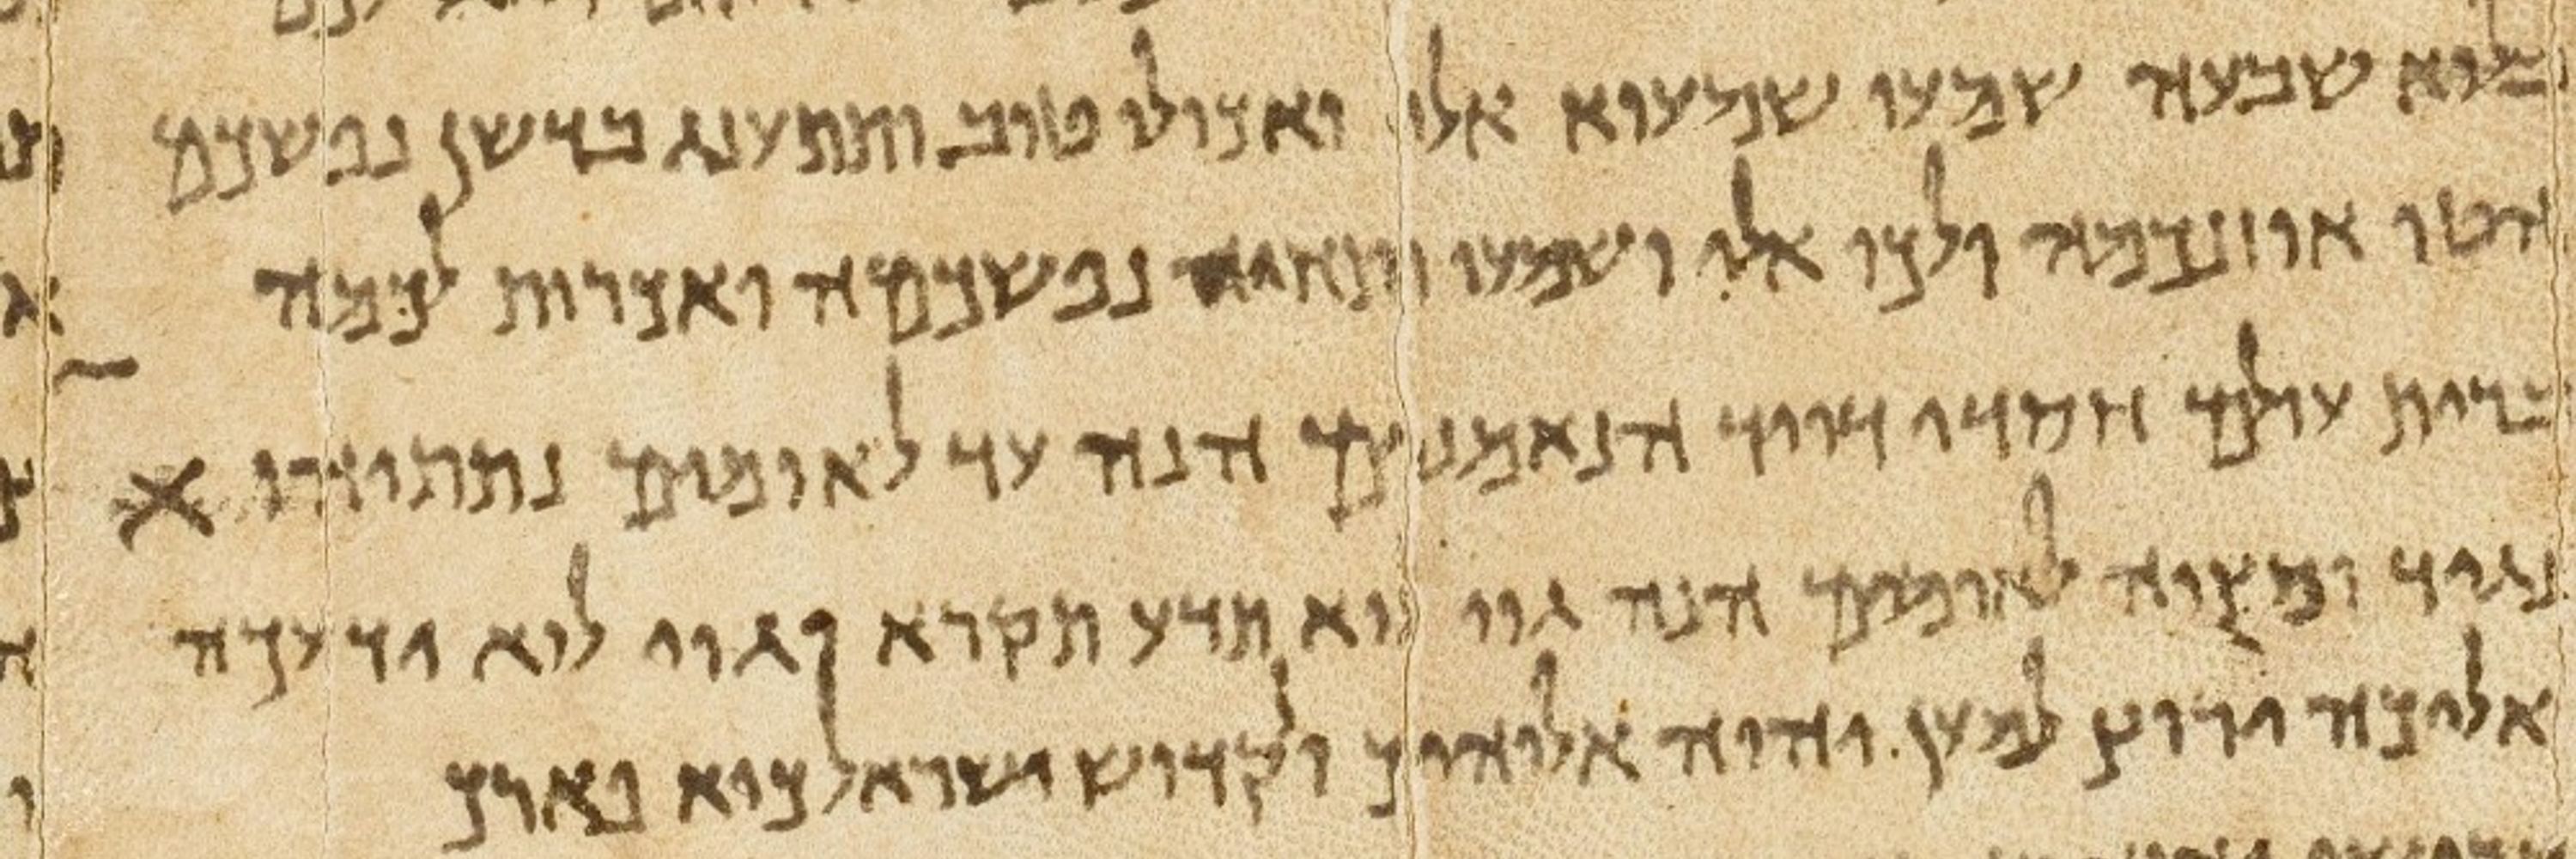 בלוא שבעה שמעו שמעוא אלי ואכולו טוב ותתענג בדשן נפשכם
הטו אוזנכמה ולכו אלי ושמעו ותחיה נפשכמה ואכרות לכמה
ברית עולם חסדי דויד הנאמנים הנה עד לאומים נתתיהו
נגיד ומצוה לאומים הנה גוי לוא תדע תקרא וגוי לוא ידעכה
אליכה ירוץ למען יהוה אלוהיך ולקדוש ישראל כיא פארך